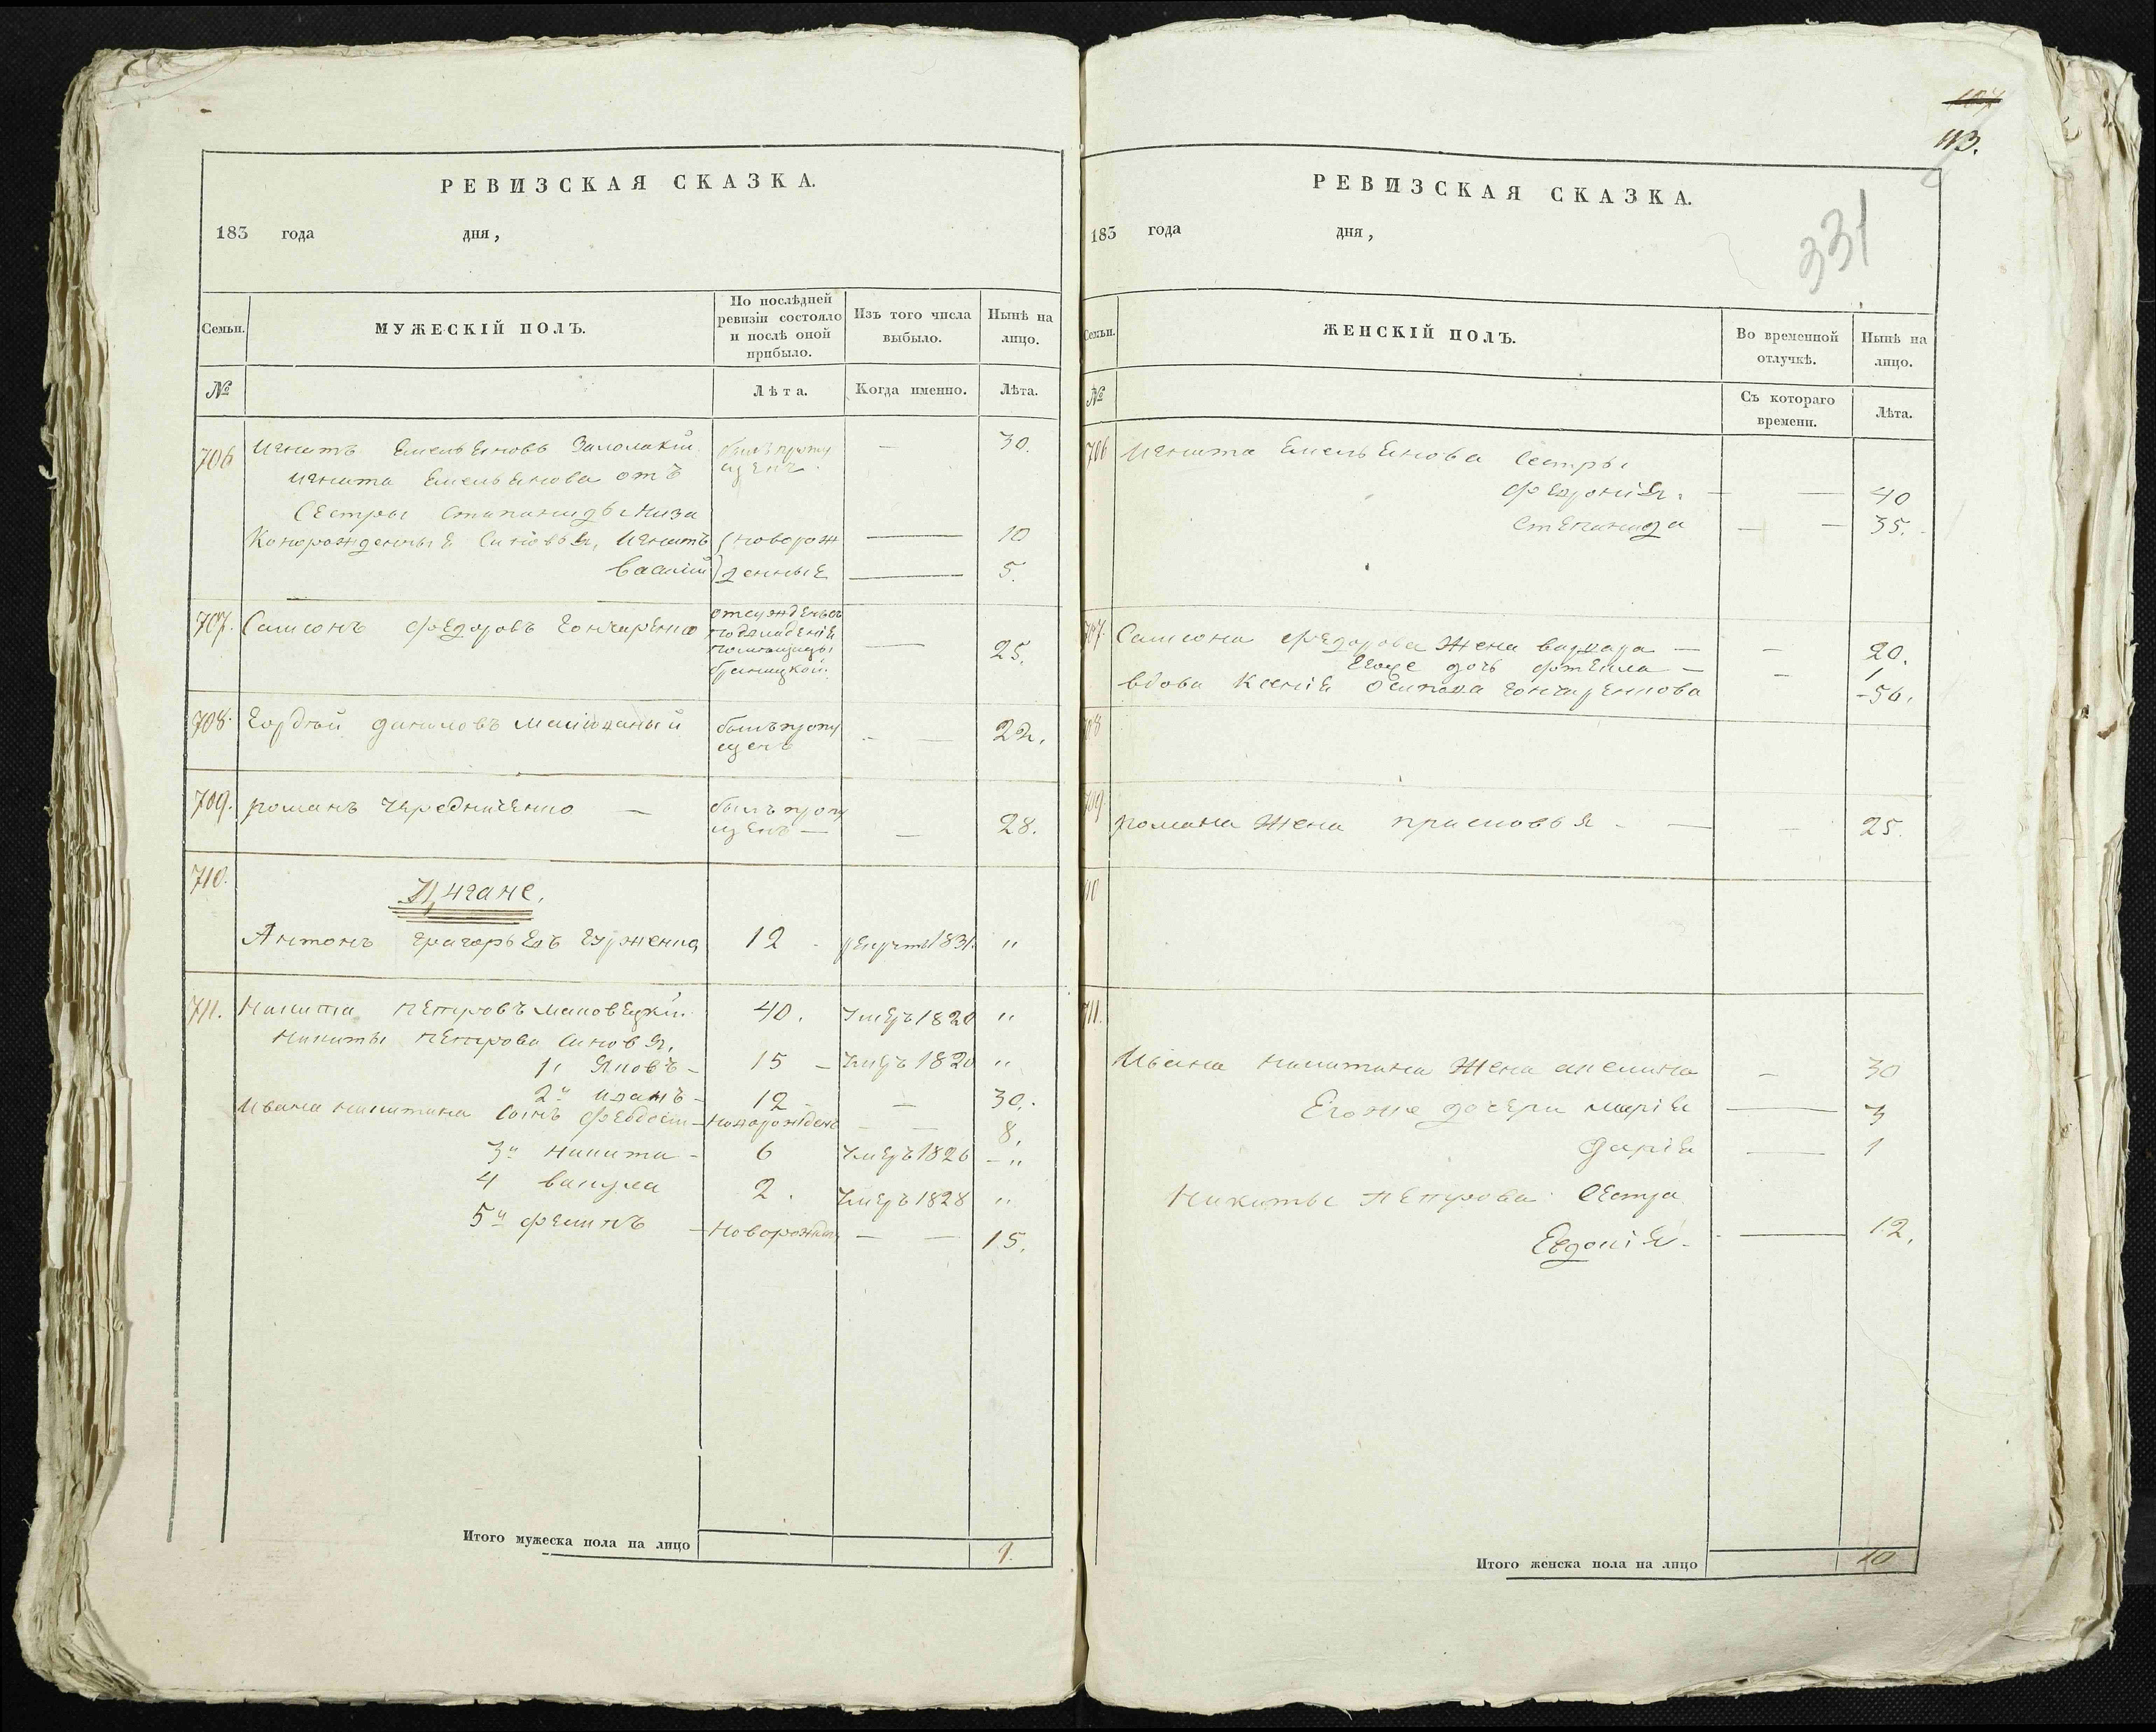 РЕВИЗСКАЯ СКАЗКА.
183 года дня,
Семьи.
МУЖЕСКІЙ ПОЛЪ.
По послѣдней ревизіи состояло и послѣ оной прибыло.
Изъ того числа выбыло.
Нынѣ на лицо.
№
Лѣта.
Когда именно.
Лѣта.
706 Игнатъ Емельяновъ был пропу 30.
Игната Емельянова отъ щенъ
Сестры Степаниды Неза
Конорожденныя Сыновья, Игнатъ новорож 10
Василій денные 5.
707. Самсонъ Федоровъ Гончаренко 25.
708. Гордѣй Даниловъ былъ пропу щенъ 22.
709. романъ Чередниченко — былъ пропу щенъ — 28.
710.
Цигане.
Антонъ Григорьевъ 12 рекрут 1831. "
711. Никита Петровъ Маковецкій 40. Умеръ 1820 "
Никиты Петрова Синовя,
1й Яковъ 15 Умеръ 1820 "
2й Иванъ 12 — 30.
Ивана Никитина Сынъ новорожденъ — — 8.
3й Никита 6 Умеръ 1826 "
4 Вакула 2. Умеръ 1828 "
5й Филипъ Новорожден — — 15.
Итого мужеска пола на лицо 9.
107
113.
331
РЕВИЗСКАЯ СКАЗКА.
183 года дня,
Семьи.
ЖЕНСКІЙ ПОЛЪ.
Во временной отлучкѣ.
Нынѣ на лицо.
№
Съ котораго времени.
Лѣта.
706 Игната Емельянова Сестры
Февронія. — — 40
Степанида — — 35.
707. Самсона Федорова Жена варвара — — 20.
Егоже дочь — 1
вдова Ксенія Осипова Гончаренкова 50.
708
709. романа Жена присковья — — — 25.
710
711.
Ивана Никитина Жена акелина — 30
Егоже дочери Марія — 3
Дарія — 1
Никиты Петрова Сестра
Евдокія — 12.
Итого женска пола на лицо 10